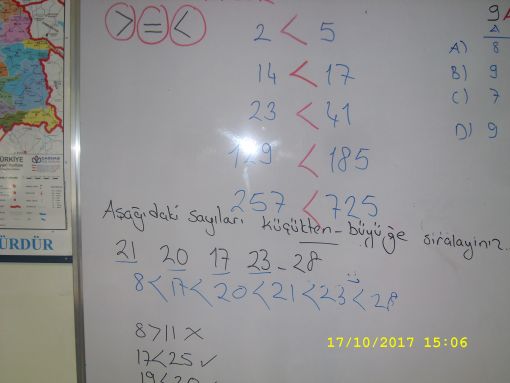 > = <
2 < 5
14 < 17
23 < 41
129 < 185
257 < 725
Aşağıdaki sayıları küçükten-büyüğe sıralayınız.
21 20 17 23 - 28
8 < 17 < 20 < 21 < 23 < 28
8 > 11 ×
17 < 25 ✓
19 < 20 ✓
9
A) 8
B) 9
C) 7
D) 9
TÜRKİYE
ÜRDÜR
17/10/2017 15:06